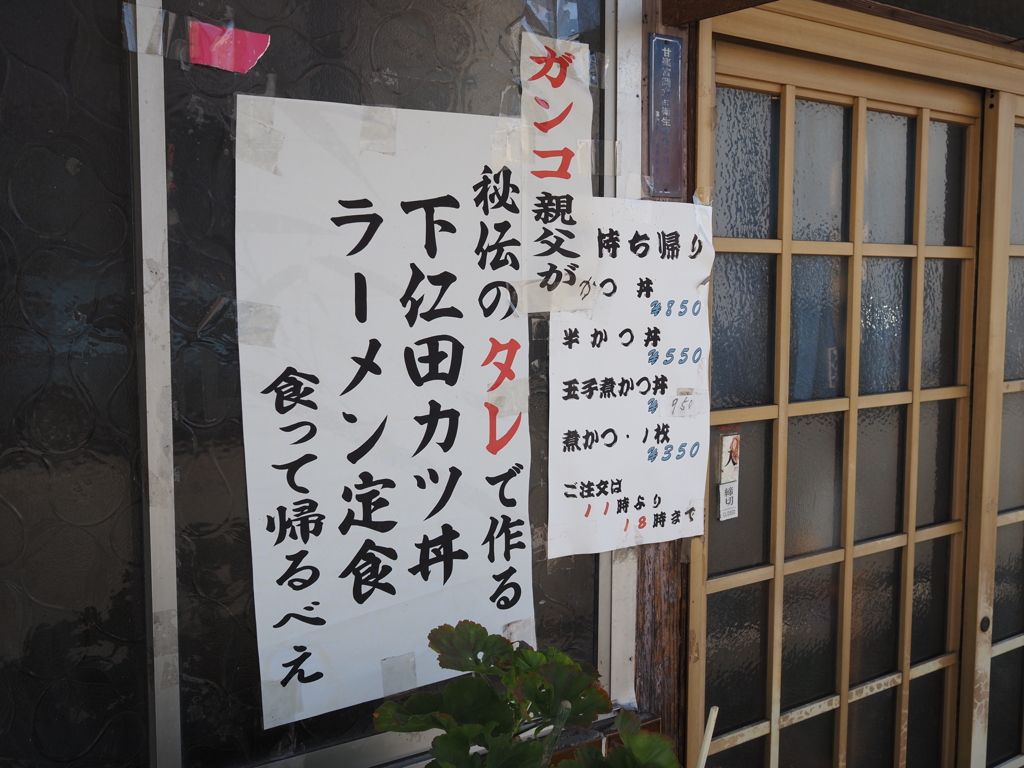 ガンコ親父が
秘伝のタレで作る
下仁田カツ丼
ラーメン定食
食って帰るべえ
持ち帰り
かつ丼
¥850
半かつ丼
¥550
玉子煮かつ丼
¥950
煮かつ・1枚
¥350
ご注文は
11時より
18時まで